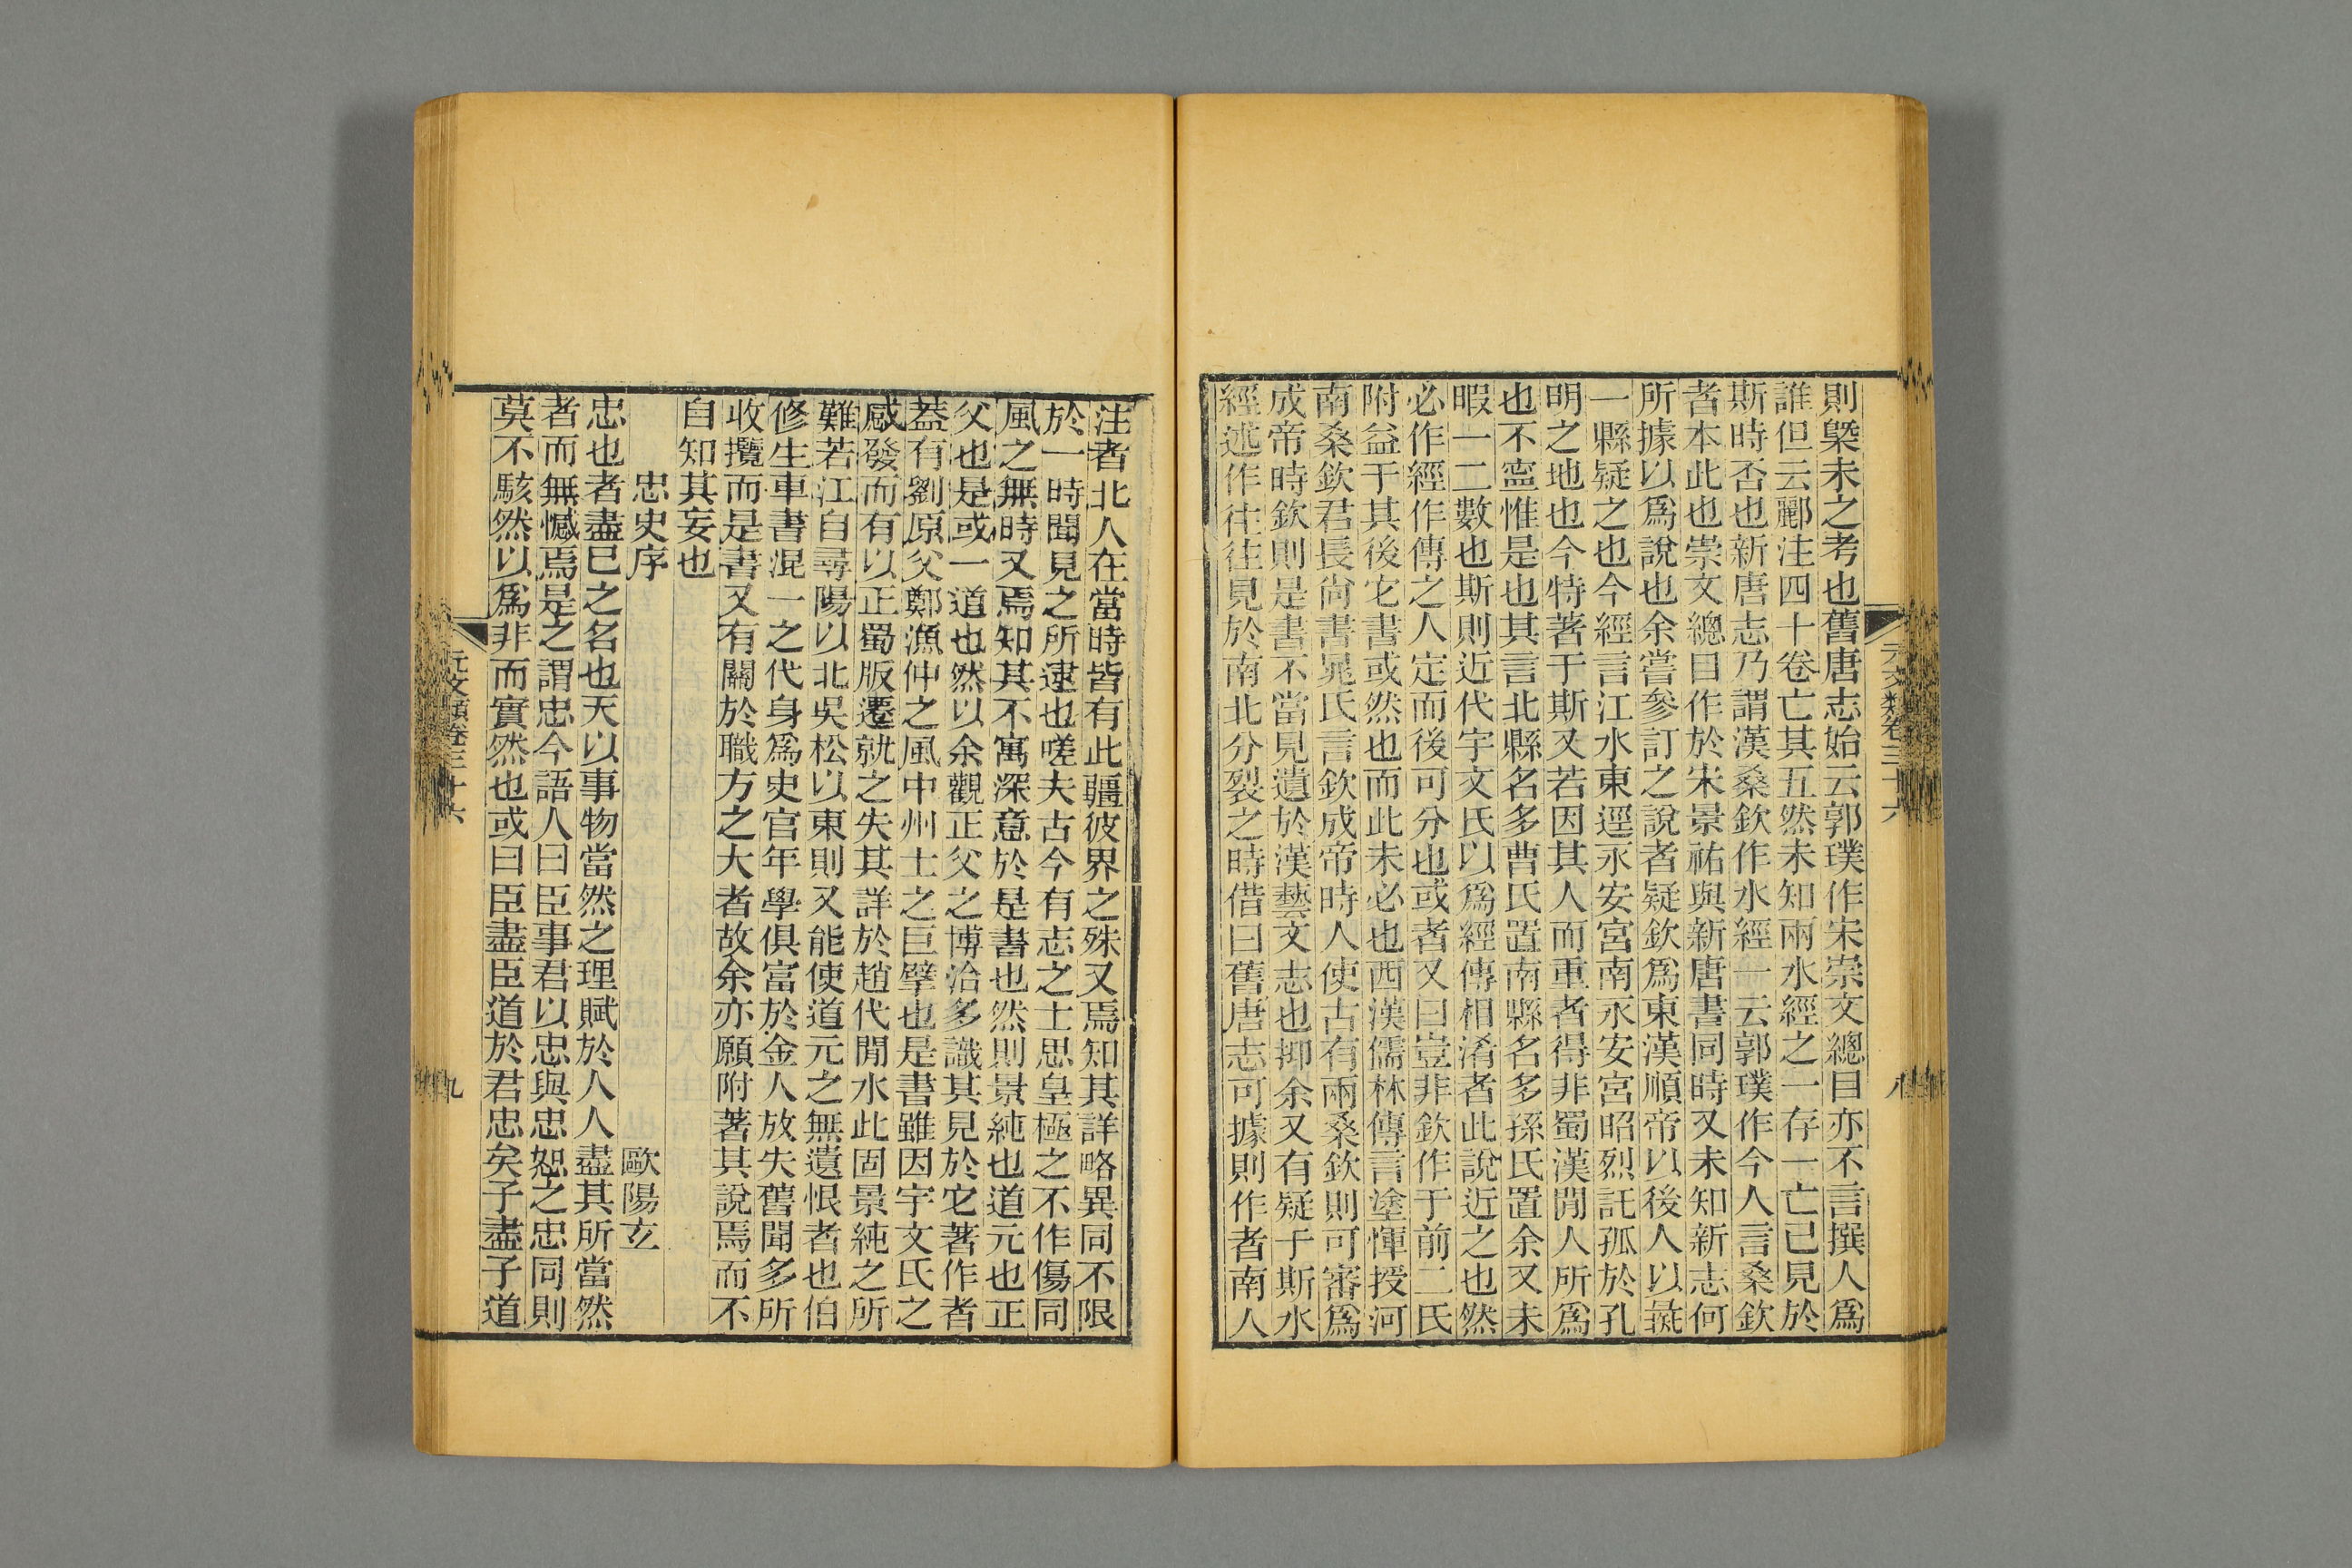 則槩未之考也舊唐志始云郭璞作宋崇文總目亦不言撰人爲
誰但云酈注四十卷亡其五然未知兩水經之一存一亡已見於
斯時否也新唐志乃謂漢桑欽作水經一云郭璞作今人言桑欽
者本此也崇文總目作於宋景祐與新唐書同時又未知新志何
所據以爲說也余嘗參訂之說者疑欽爲東漢順帝以後人以
一縣疑之也今經言江水東逕永安宮南永安宮昭烈託孤於孔
明之地也今特著于斯又若因其人而重者得非蜀漢閒人所爲
也不寍惟是也其言北縣名多曹氏置南縣名多孫氏置余又未
暇一二數也斯則近代宇文氏以爲經傳相淆者此說近之也然
必作經作傳之人定而後可分也或者又曰豈非欽作于前二氏
附益于其後它書或然也而此未必也西漢儒林傳言塗惲授河
南桑欽君長尙書晁氏言欽成帝時人使古有兩桑欽則可審爲
成帝時欽則是書不當見遺於漢藝文志也抑余又有疑于斯水
經述作往往見於南北分裂之時借曰舊唐志可據則作者南人
元文類卷三十六
八
注者北人在當時皆有此疆彼界之殊又焉知其詳略異同不限
於一時聞見之所逮也嗟夫古今有志之士思皇極之不作傷同
風之無時又焉知其不寓深意於是書也然則景純也道元也正
父也是或一道也然以余觀正父之博洽多識其見於它著作者
葢有劉原父鄭漁仲之風中州士之巨擘也是書雖因宇文氏之
感發而有以正蜀版遷就之失其詳於趙代閒水此固景純之所
難若江自尋陽以北吳松以東則又能使道元之無遺恨者也伯
修生車書混一之代身爲史官年學俱富於金人放失舊聞多所
收攬而是書又有關於職方之大者故余亦願附著其說焉而不
自知其妄也
忠史序
歐陽玄
忠也者盡已之名也天以事物當然之理賦於人人盡其所當然
者而無憾焉是之謂忠今語人曰臣事君以忠與忠恕之忠同則
莫不駭然以爲非而實然也或曰臣盡臣道於君忠矣子盡子道
元文類卷三十六
九